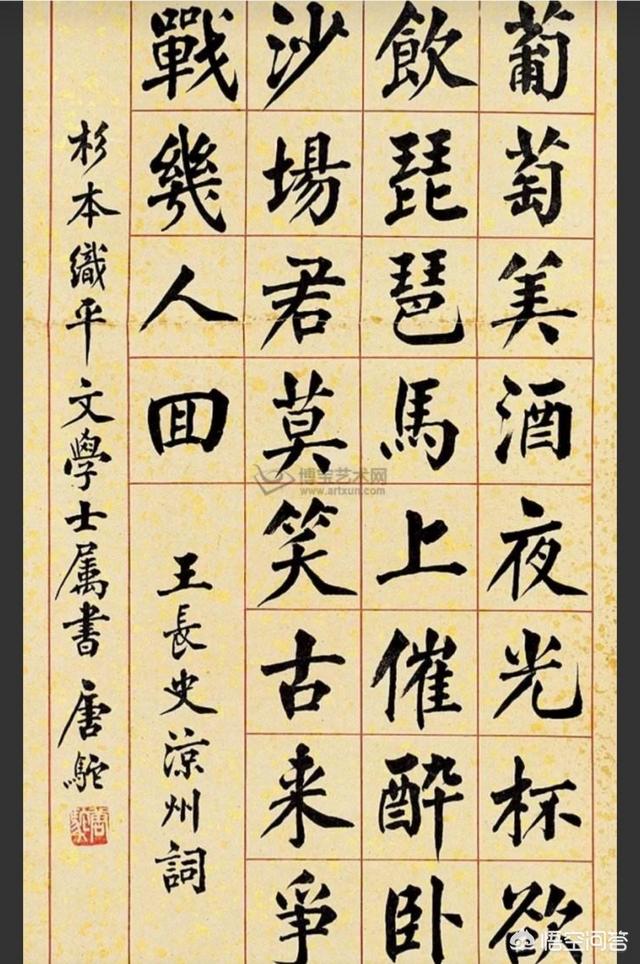 葡萄美酒夜光杯欲
飲琵琶馬上催醉卧
沙場君莫笑古来爭
戰幾人囬
王長史涼州詞
杉本織平文學士属書 唐駝
唐駝
博宝艺术网
www.artxun.com
悟空问答